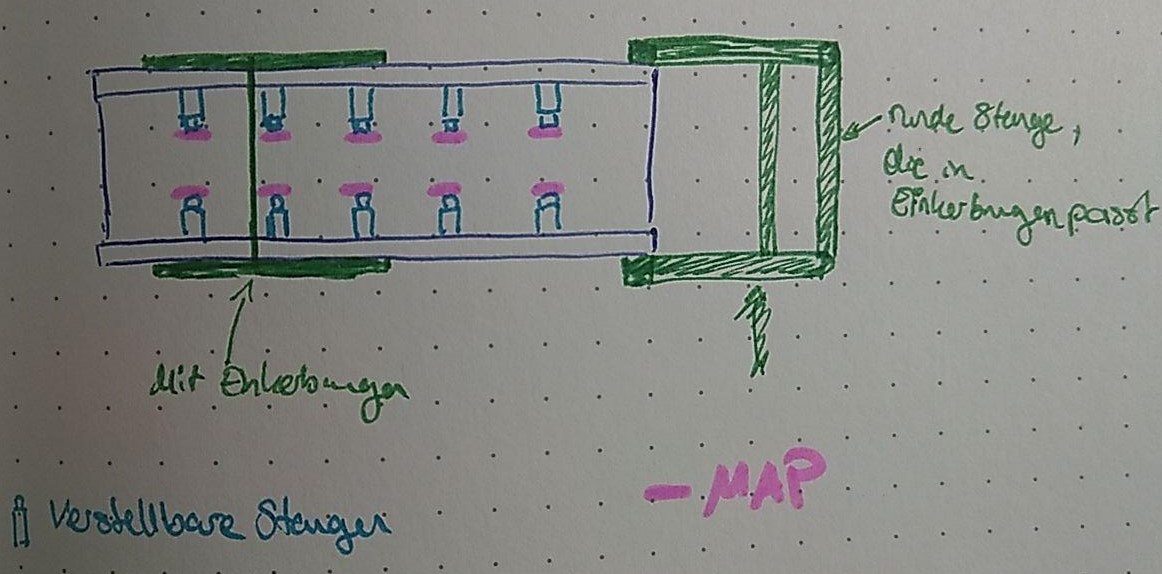 runde Stange,
die in
Einkerbungen passt
Mit Einkerbungen
- MAP
Verstellbare Stangen